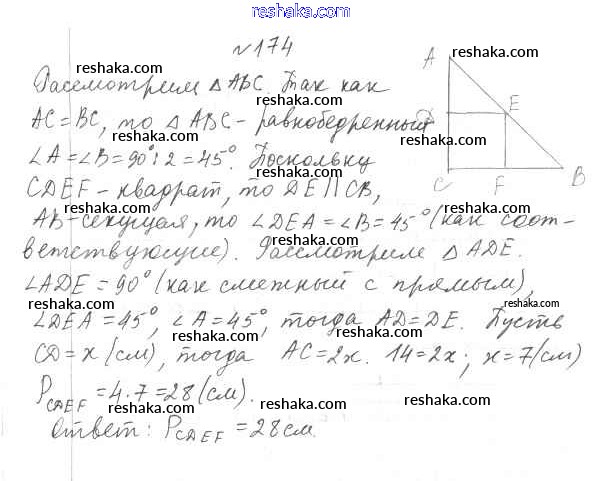 reshaka.com
№174
reshaka.com
reshaka.com
Рассмотрим △ABC. Так как
A
reshaka.com
AC = BC, то △ABC - равнобедренный
D
E
reshaka.com
∠A = ∠B = 90° : 2 = 45°. Поскольку
reshaka.com
CDEF - квадрат, то DE || CB,
C
F
B
reshaka.com
AB - секущая, то ∠DEA = ∠B = 45° (как соот-
reshaka.com
ветствующие). Рассмотрим △ADE.
reshaka.com
∠ADE = 90° (как смежный с прямым),
reshaka.com
reshaka.com
∠DEA = 45°, ∠A = 45°, тогда AD = DE. Пусть
reshaka.com
CD = x (см), тогда AC = 2x. 14 = 2x; x = 7 (см)
reshaka.com
reshaka.com
P CDEF = 4 · 7 = 28 (см).
reshaka.com
reshaka.com
Ответ: P CDEF = 28 см.